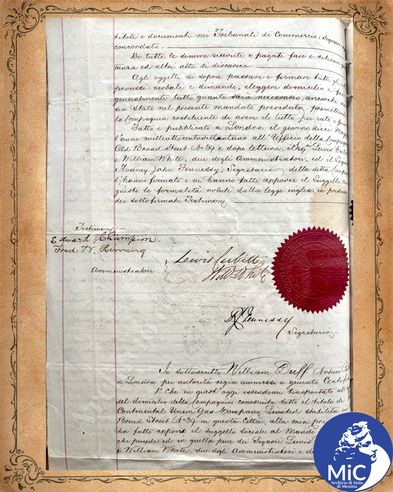 titoli e documenti nei Tribunali di Commercio, segnare
concordati.
Di tutte le somme ricevute e pagate fare e
tanza ed altri atti di discarico.
Agli oggetti di sopra passare e firmare tutti gl
processi verbali e dimande, eleggere domicilio e
generalmente tutto quanto sarà necessario, ancorchè
sia stato nel presente mandato preveduto, promettendo
la Compagnia costituente di avere il tutto per rato e
Fatto e pubblicato a Londra il giorno dieci
l'anno millecentosettantano all'Ufficio della
Old Broad Street No 37 e dopo lettura, i Sigri Lewis
e William White, due degli Amministratori, ed il Sig
Rodney John Fennessy, Segretario, della detta
hanno firmato e vi hanno fatto apporre il Suggello
giusto le formalità volute dalla legge inglese in presenza
dei sottofirmati Testimonj.
Testimonj
Edward Champion
Fred. W.
Amministratori
Lewis Cubitt
Will. White
RJ Fennessy
Segretario
Io sottoscritto William Duff Notaio
di Londra per autorità regia ammesso e giurato Certifico
che in quest'oggi essendomi trasportato al
del domicilio della Compagnia conosciuta sotto il titolo di
Continental Union Gas Company Limited stabilita
Broad Street No 37 in questa Città, alla mia
han fatto apporre il suggello sociale al Mandato
che precede ed in quella pure dei Signori Lewis
e William White due degli Amministratori e di
MiC
Archivio di Stato
di Messina